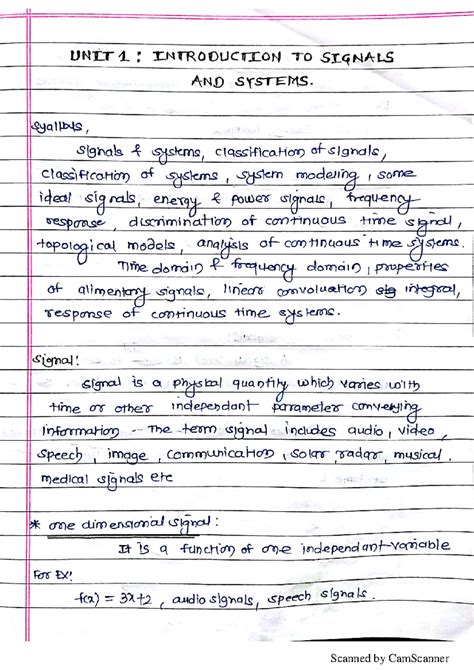 UNIT 1 : INTRODUCTION TO SIGNALS
AND SYSTEMS.
Syallbus,
Signals & systems, classification of signals,
classification of systems, system modeling, some
ideal signals, energy & power signals, frequency
response, discrimination of continuous time signal,
topological models, analysis of continuous time systems.
Time domain & frequency domain, properties
of alimentary signals, linear convoluation integral,
response of continuous time systems.
Signal:
Signal is a physical quantity which varies with
time or other independant parameter converying
information - The term signal includes audio, video,
speech, image, communication, solar radar, musical.
medical signals etc
* one dimensional signal:
It is a function of one independant-variable
For Ex:
f(x) = 3x+2, audio signals, speech signals.
Scanned by CamScanner